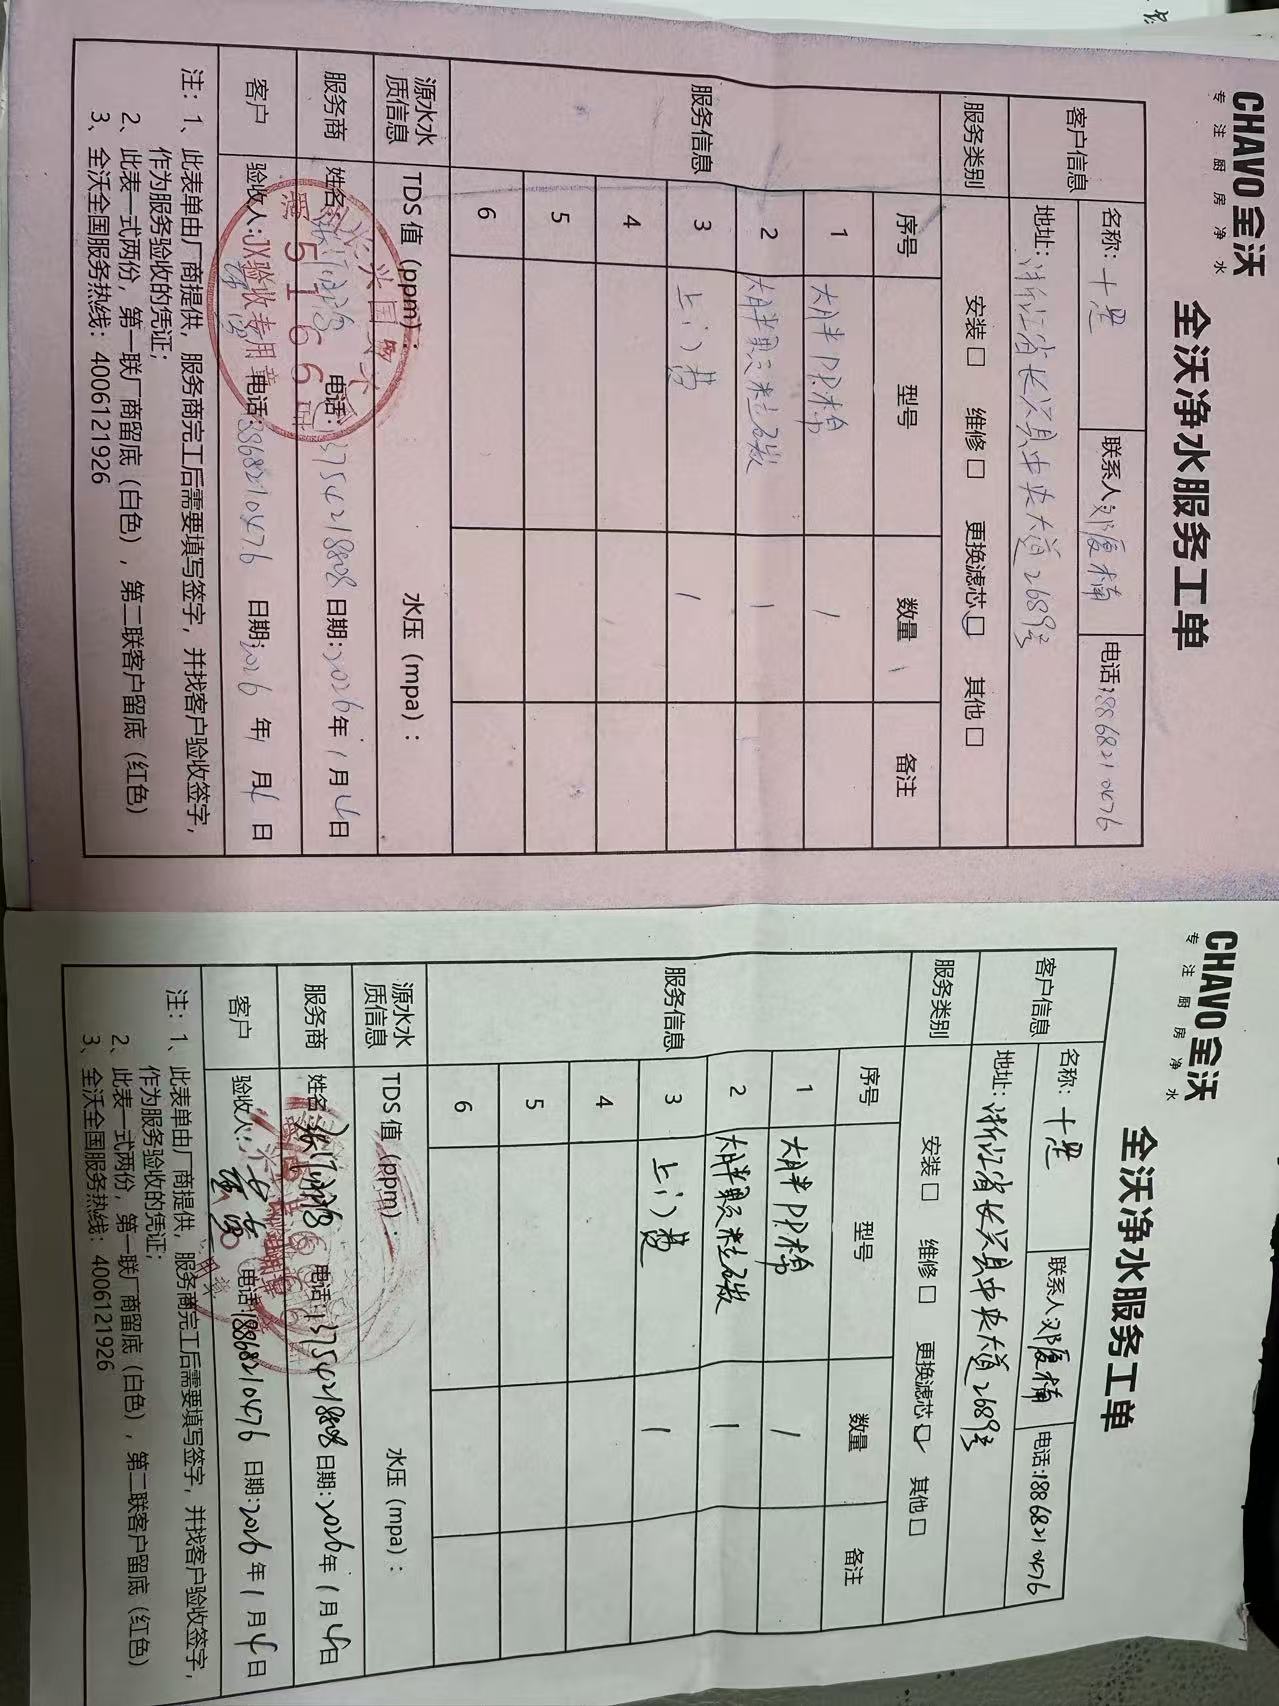 CHAVO全沃
专注厨房净水
全沃净水服务工单
客户信息 名称：十里 联系人 邓厦楠 电话：18868210476
地址：浙江省长兴县中央大道2689号
服务类别 安装□ 维修□ 更换滤芯☑ 其他□
服务信息 序号 型号 数量 备注
1 大胖PP棉 1
2 大胖颗粒碳 1
3 上门费 1
4
5
6
源水水质信息 TDS值（ppm）： 水压（mpa）：
服务商 姓名： 电话：13754218808 日期：2026年1月4日
客户 验收人： 电话：18868210476 日期：2026年1月4日
JX验收专用章
5166
注：1、此表单由厂商提供，服务商完工后需要填写签字，并找客户验收签字，
作为服务验收的凭证；
2、此表一式两份，第一联厂商留底（白色），第二联客户留底（红色）
3、全沃全国服务热线：4006121926
CHAVO全沃
专注厨房净水
全沃净水服务工单
客户信息 名称：十里 联系人 邓厦楠 电话：18868210476
地址：浙江省长兴县中央大道2689号
服务类别 安装□ 维修□ 更换滤芯☑ 其他□
服务信息 序号 型号 数量 备注
1 大胖PP棉 1
2 大胖颗粒碳 1
3 上门费 1
4
5
6
源水水质信息 TDS值（ppm）： 水压（mpa）：
服务商 姓名： 电话：13754218808 日期：2026年1月4日
客户 验收人： 电话：18868210476 日期：2026年1月4日
注：1、此表单由厂商提供，服务商完工后需要填写签字，并找客户验收签字，
作为服务验收的凭证；
2、此表一式两份，第一联厂商留底（白色），第二联客户留底（红色）
3、全沃全国服务热线：4006121926